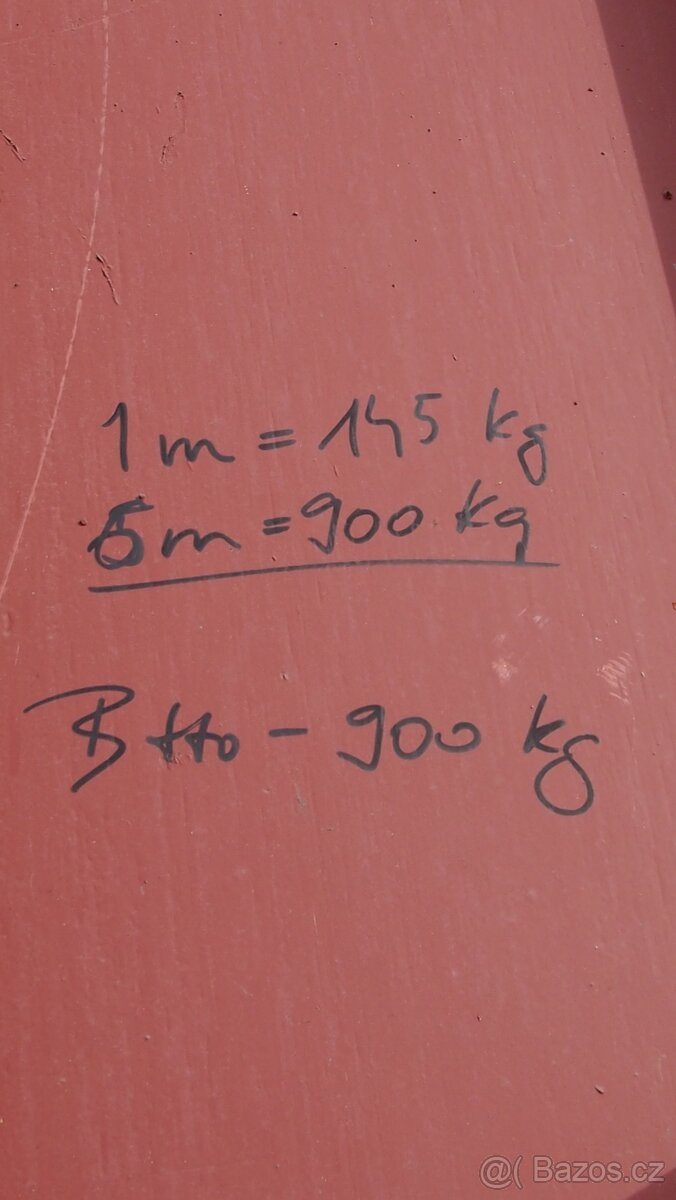 1 m = 145 kg
6m = 900 kg
Btto - 900 kg
@( Bazos.cz